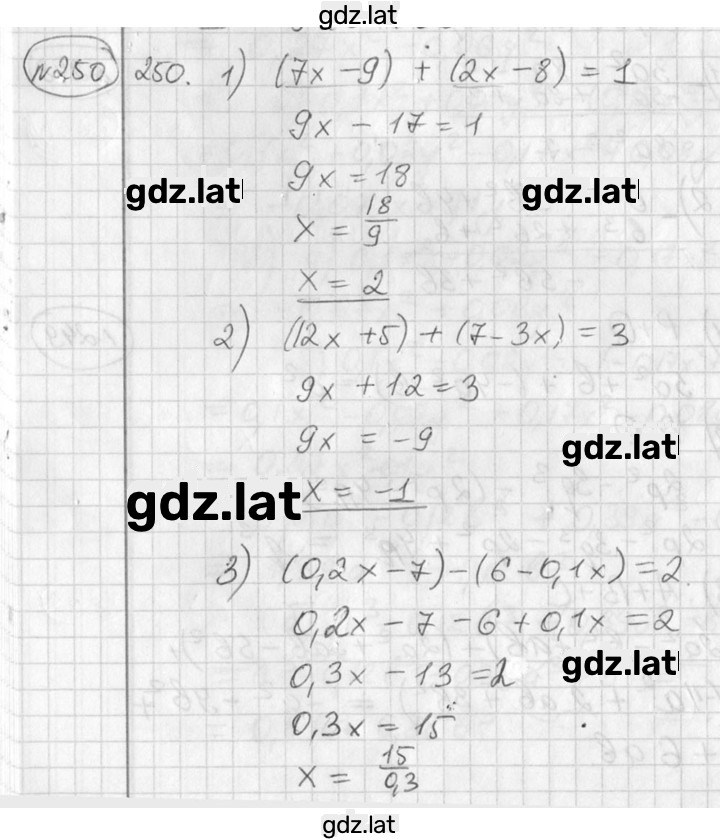 gdz.lat
№250 250. 1) (7x - 9) + (2x - 8) = 1
9x - 17 = 1
9x = 18
gdz.lat gdz.lat
x = 18/9
x = 2
2) (12x + 5) + (7 - 3x) = 3
9x + 12 = 3
9x = -9
gdz.lat
gdz.lat x = -1
3) (0,2x - 7) - (6 - 0,1x) = 2
0,2x - 7 - 6 + 0,1x = 2
gdz.lat
0,3x - 13 = 2
0,3x = 15
x = 15/0,3
gdz.lat